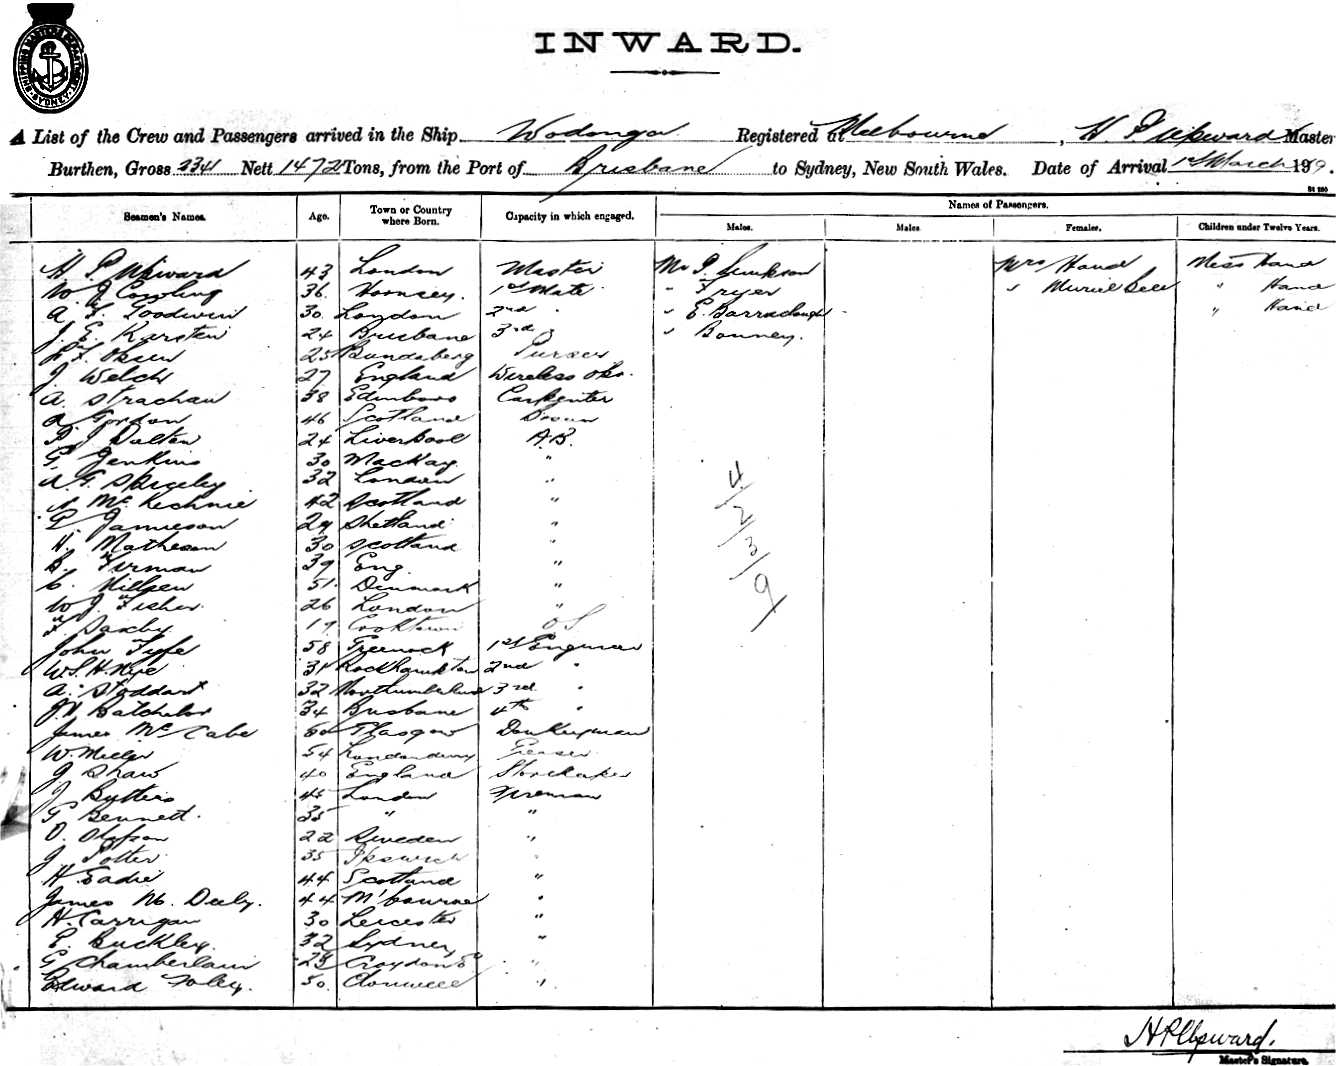 SHIPPING MASTER'S DEPARTMENT SYDNEY
INWARD.
A List of the Crew and Passengers arrived in the Ship Wodonga Registered at Melbourne, H P Upward Master
Burthen, Gross 2341 Nett 1472 Tons, from the Port of Brisbane to Sydney, New South Wales. Date of Arrival 1st March 19
Seamen's Names. Age. Town or Country where Born. Capacity in which engaged. Names of Passengers.
Males. Males. Females. Children under Twelve Years.
H P Upward 43 London Master Mr J. Simkson Mrs Hand Miss Hand
W J Cowling 36 Hornsey. 1st Mate " Fryer " Muriel Bell " Hand
A F. Goodwin 30 London 2nd " " E. Barraclough " Hand
J. E. Karsten 24 Brisbane 3rd " " Bonney.
Olsen 25 Bundaberg Purser
J Welch 27 England Wireless Opr.
A. Strachan 38 Edinboro Carpenter
A Gordon 46 Scotland Bosun
P. J Dalton 24 Liverpool AB.
G. Jenkins 30 MacKay "
A. G. Spigeley 32 London "
A McKechnie 42 Scotland "
P. Jamieson 29 Shetland "
H. Matheson 30 Scotland "
B. Firman 39 Eng. "
C. Nillsen 51 Denmark "
W J. Fisher 26 London "
F. Saxby 17 Cooktown OS
John Fyfe 58 Greenock 1st Engineer
W. S. H. Nye 31 Rockhampton 2nd "
A. Stoddart 32 Northumberland 3rd "
Batchelor 34 Brisbane 4th "
James McCabe 60 Glasgow Donkeyman
W. Miller 54 Londonderry Greaser
J Shaw 40 England Storekeeper
J Butters 45 London Fireman
G Bennett. 35 " "
O. Olafson 22 Sweden "
J Potter 35 Ipswich "
H Eadie 44 Scotland "
James M. Deely. 44 M'bourne "
H. Carrigan 30 Leicester "
E. Buckley. 32 Sydney "
G Chamberlain 28 Croydon "
Edward Foley. 30. Clonmell "
4
2
3
9
H P Upward.
Master's Signature.